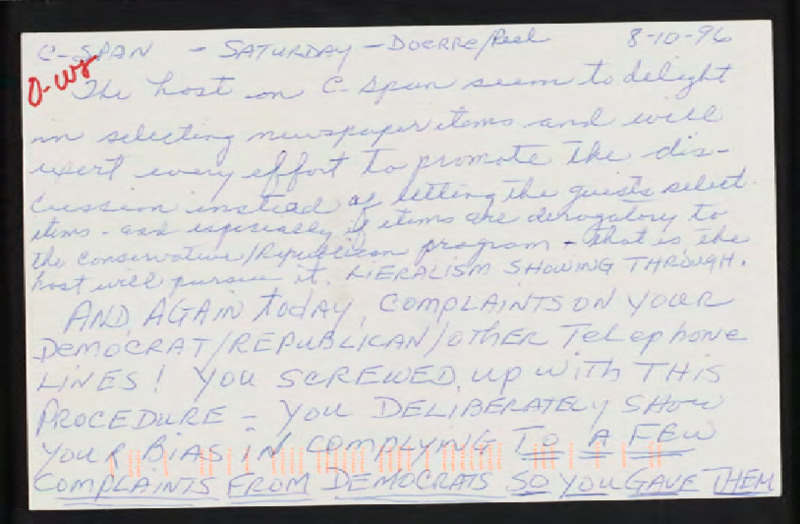 C-SPAN - SATURDAY - Doerre/Peel 8-10-96
O-W8
The host on C-Span seem to delight
in selecting newspaper items and will
exert every effort to promote the dis-
cussion instead of letting the guests select
items - and especially if items are derogatory to
the conservative/Republican program - that is the
host will pursue it. LIERALISM SHOWING THROUGH.
AND, AGAIN today, COMPLAINTS ON YOUR
DEMOCRAT/REPUBLICAN/OTHER TeLephone
LINES! YOU SCREWED up WITH THIS
PROCEDURE - YOU DELIBERATELY SHOW
YOUR BIAS IN COMPLYING TO A FEW
COMPLAINTS FROM DEMOCRATS SO YOU GAVE THEM